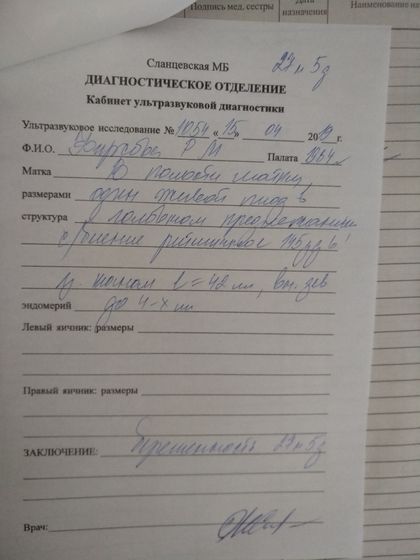 Подпись мед. сестры
Дата назначения
Наименование
27 н 5 д
Сланцевская МБ
ДИАГНОСТИЧЕСКОЕ ОТДЕЛЕНИЕ
Кабинет ультразвуковой диагностики
Ультразвуковое исследование № 1054 « 15 » 04 2019 г.
Ф.И.О. Р М Палата 1984
Матка В полости матки
размерами один живой плод в
структура головном предлежании
с/биение ритмичное 145 уд/м
ц. канал l = 42 мм, вн. зев
эндомерий до 4-х мм
Левый яичник: размеры
Правый яичник: размеры
ЗАКЛЮЧЕНИЕ: Беременность 27 н 5 д
Врач: